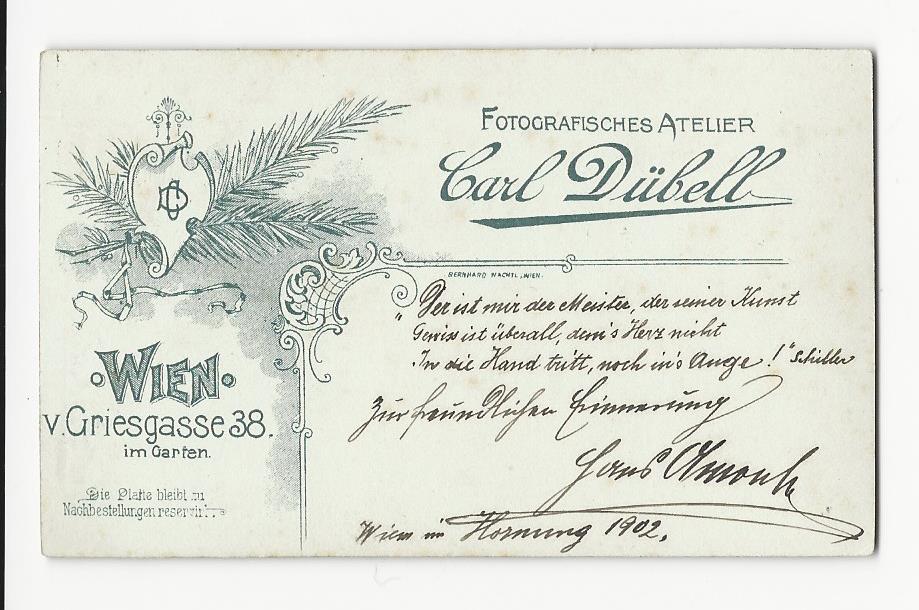 FOTOGRAFISCHES ATELIER
Carl Dübell
CD
BERNHARD WACHTL, WIEN.
"Der ist mir der Meister, der seiner Kunst
Gewiss ist überall, dem's Herz nicht
In die Hand tritt, noch in's Auge!" Schiller
Zur freundlichen Erinnerung
Hans
Wien im Hornung 1902.
WIEN
V. Griesgasse 38.
im Garten.
Die Platte bleibt zu
Nachbestellungen reservirt